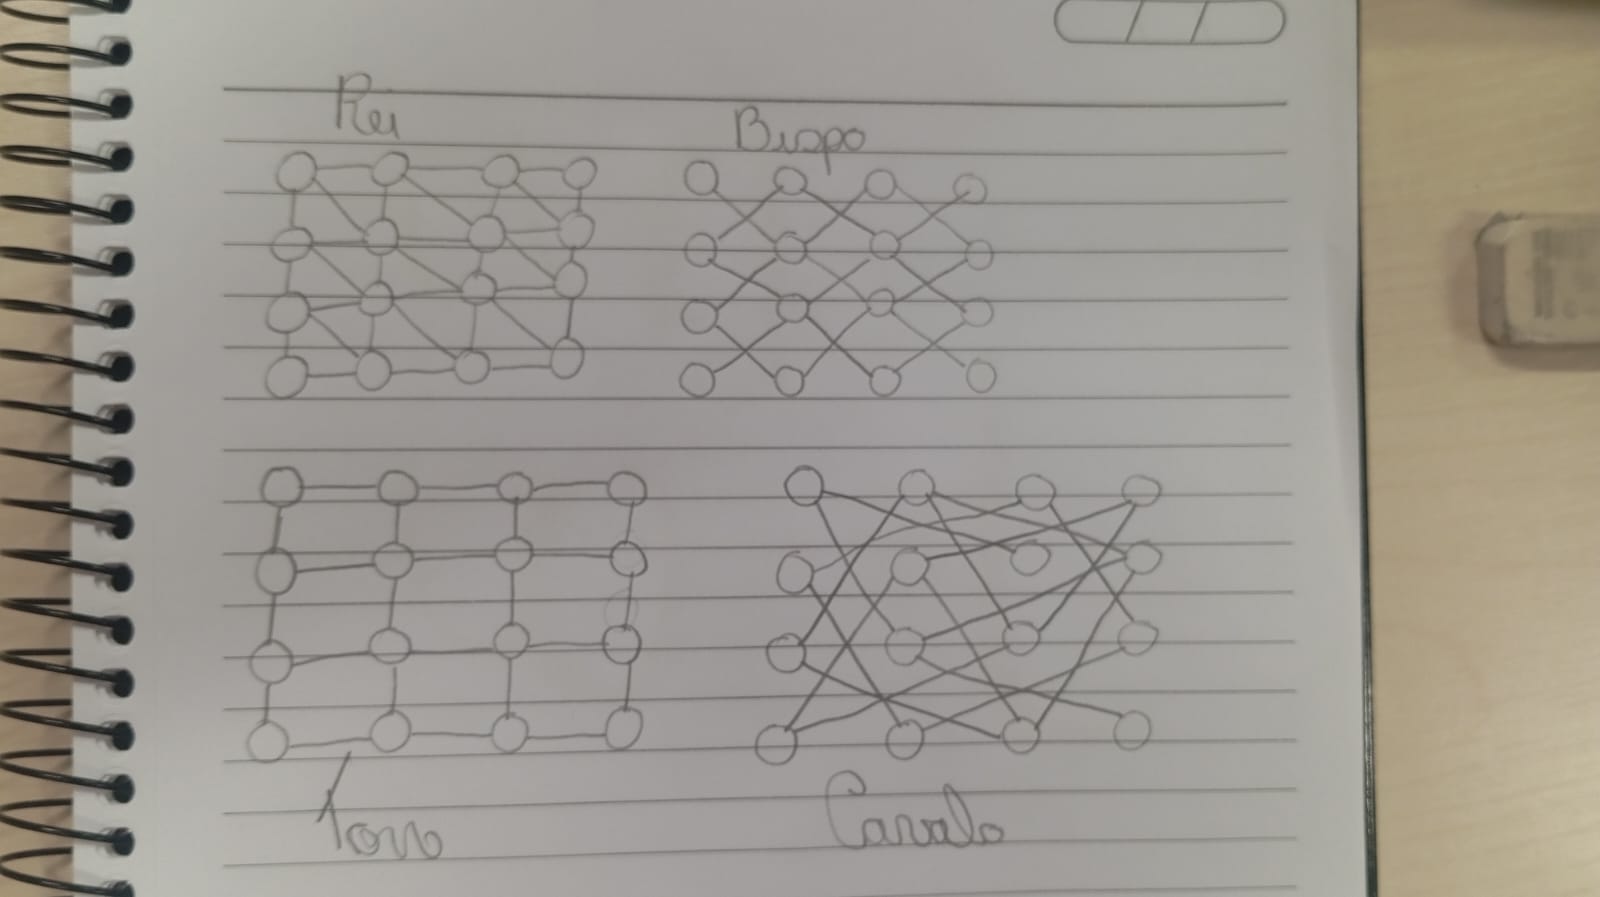 Rei
Bispo
Torre
Cavalo